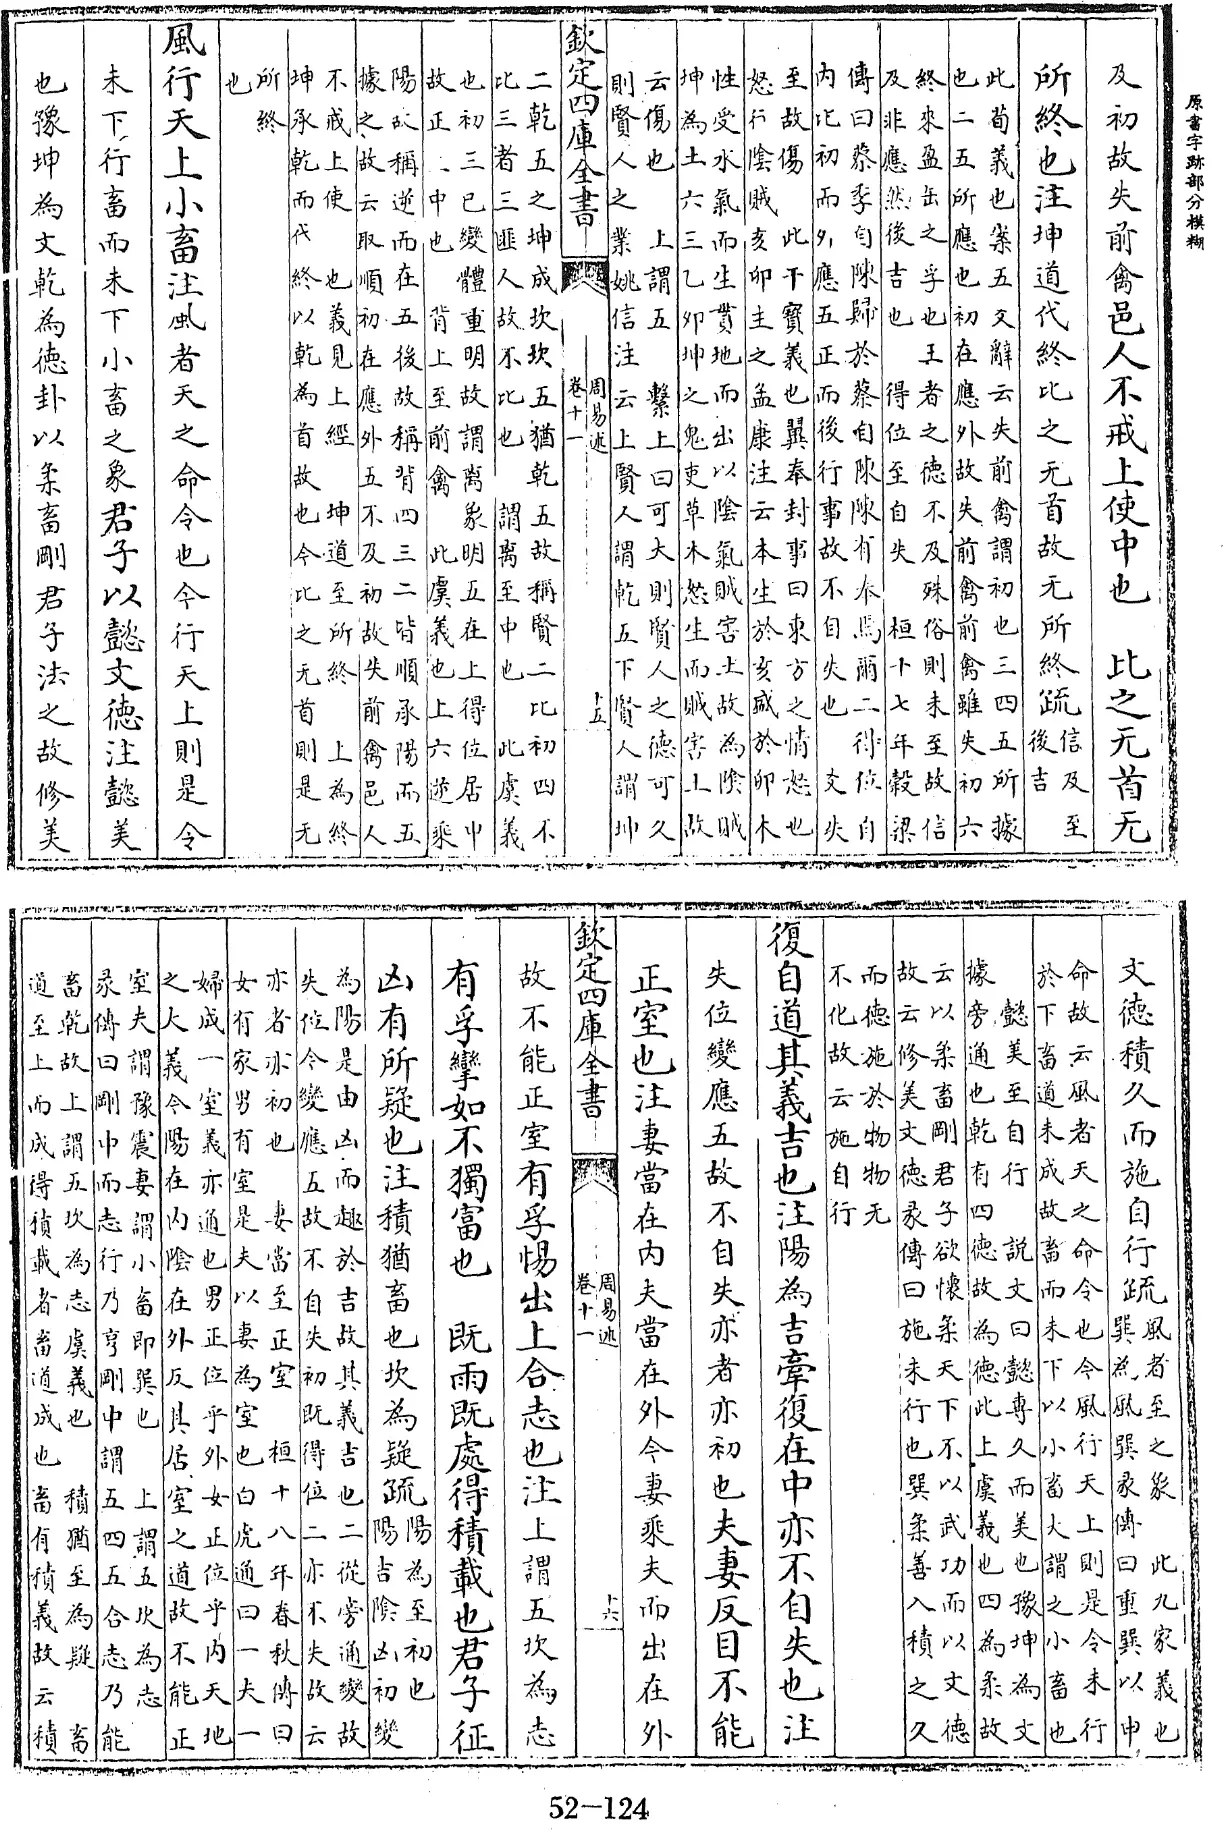 原書字跡部分模糊
及初故失前禽邑人不戒上使中也　比之无首无
所終也注坤道代終比之无首故无所終疏
信及至
後吉
此荀義也案五爻辭云失前禽謂初也三四五所據
也二五所應也初在應外故失前禽前禽雖失初六
終來盈缶之孚也王者之德不及殊俗則未至故信
及非應然後吉也　得位至自失　桓十七年穀梁
傳曰蔡季自陳歸於蔡自陳陳有奉焉爾二得位自
内比初而外應五正而後行事故不自失也　爻失
至故傷　此干寶義也翼奉封事曰東方之情怒也
怒行陰賊亥卯主之孟康注云本生於亥盛於卯木
性受水氣而生貫地而出以陰氣賊害土故為陰賊
坤為土六三乙卯坤之鬼吏草木怒生而賊害土故
云傷也　上謂五　繫上曰可大則賢人之德可久
則賢人之業姚信注云上賢人謂乾五下賢人謂坤
欽定四庫全書
周易述
卷十一
十五
二乾五之坤成坎坎五猶乾五故稱賢二比初四不
比三者三匪人故不比也　謂離至中也　此虞義
也初三已變體重明故謂離象明五在上得位居中
故正　中也　背上至前禽　此虞義也上六逆乘
陽故稱逆而在五後故稱背四三二皆順承陽而五
據之故云取順初在應外五不及初故失前禽邑人
不戒上使　也義見上經　坤道至所終　上為終
坤承乾而代終以乾為首故也今比之无首則是无
所終
也
風行天上小畜注風者天之命令也今行天上則是令
未下行畜而未下小畜之象君子以懿文德注懿美
也豫坤為文乾為德卦以柔畜剛君子法之故修美
文德積久而施自行疏
風者至之象　此九家義也
巽為風巽彖傳曰重巽以申
命故云風者天之命令也今風行天上則是令未行
於下畜道未成故畜而未下以小畜大謂之小畜也
懿美至自行　說文曰懿專久而美也豫坤為文
據旁通也乾有四德故為德此上虞義也四為柔故
云以柔畜剛君子欲懷柔天下不以武功而以文德
故云修美文德彖傳曰施未行也巽柔善入積之久
而德施於物物无
不化故云施自行
復自道其義吉也注陽為吉牽復在中亦不自失也注
失位變應五故不自失亦者亦初也夫妻反目不能
正室也注妻當在内夫當在外今妻乘夫而出在外
欽定四庫全書
周易述
卷十一
十六
故不能正室有孚惕出上合志也注上謂五坎為志
有孚攣如不獨富也　既雨既處得積載也君子征
凶有所疑也注積猶畜也坎為疑疏
陽為至初也
陽吉陰凶初變
為陽是由凶而趣於吉故其義吉也二從旁通變故
失位今變應五故不自失初既得位二亦不失故云
亦者亦初也　妻當至正室　桓十八年春秋傳曰
女有家男有室是夫以妻為室也白虎通曰一夫一
婦成一室義亦通也男正位乎外女正位乎内天地
之大義今陽在内陰在外反其居室之道故不能正
室夫謂豫震妻謂小畜即巽也　上謂五坎為志
彖傳曰剛中而志行乃亨剛中謂五四五合志乃能
畜乾故上謂五坎為志虞義也　積猶至為疑　畜
道至上而成得積載者畜道成也畜有積義故云積
52-124